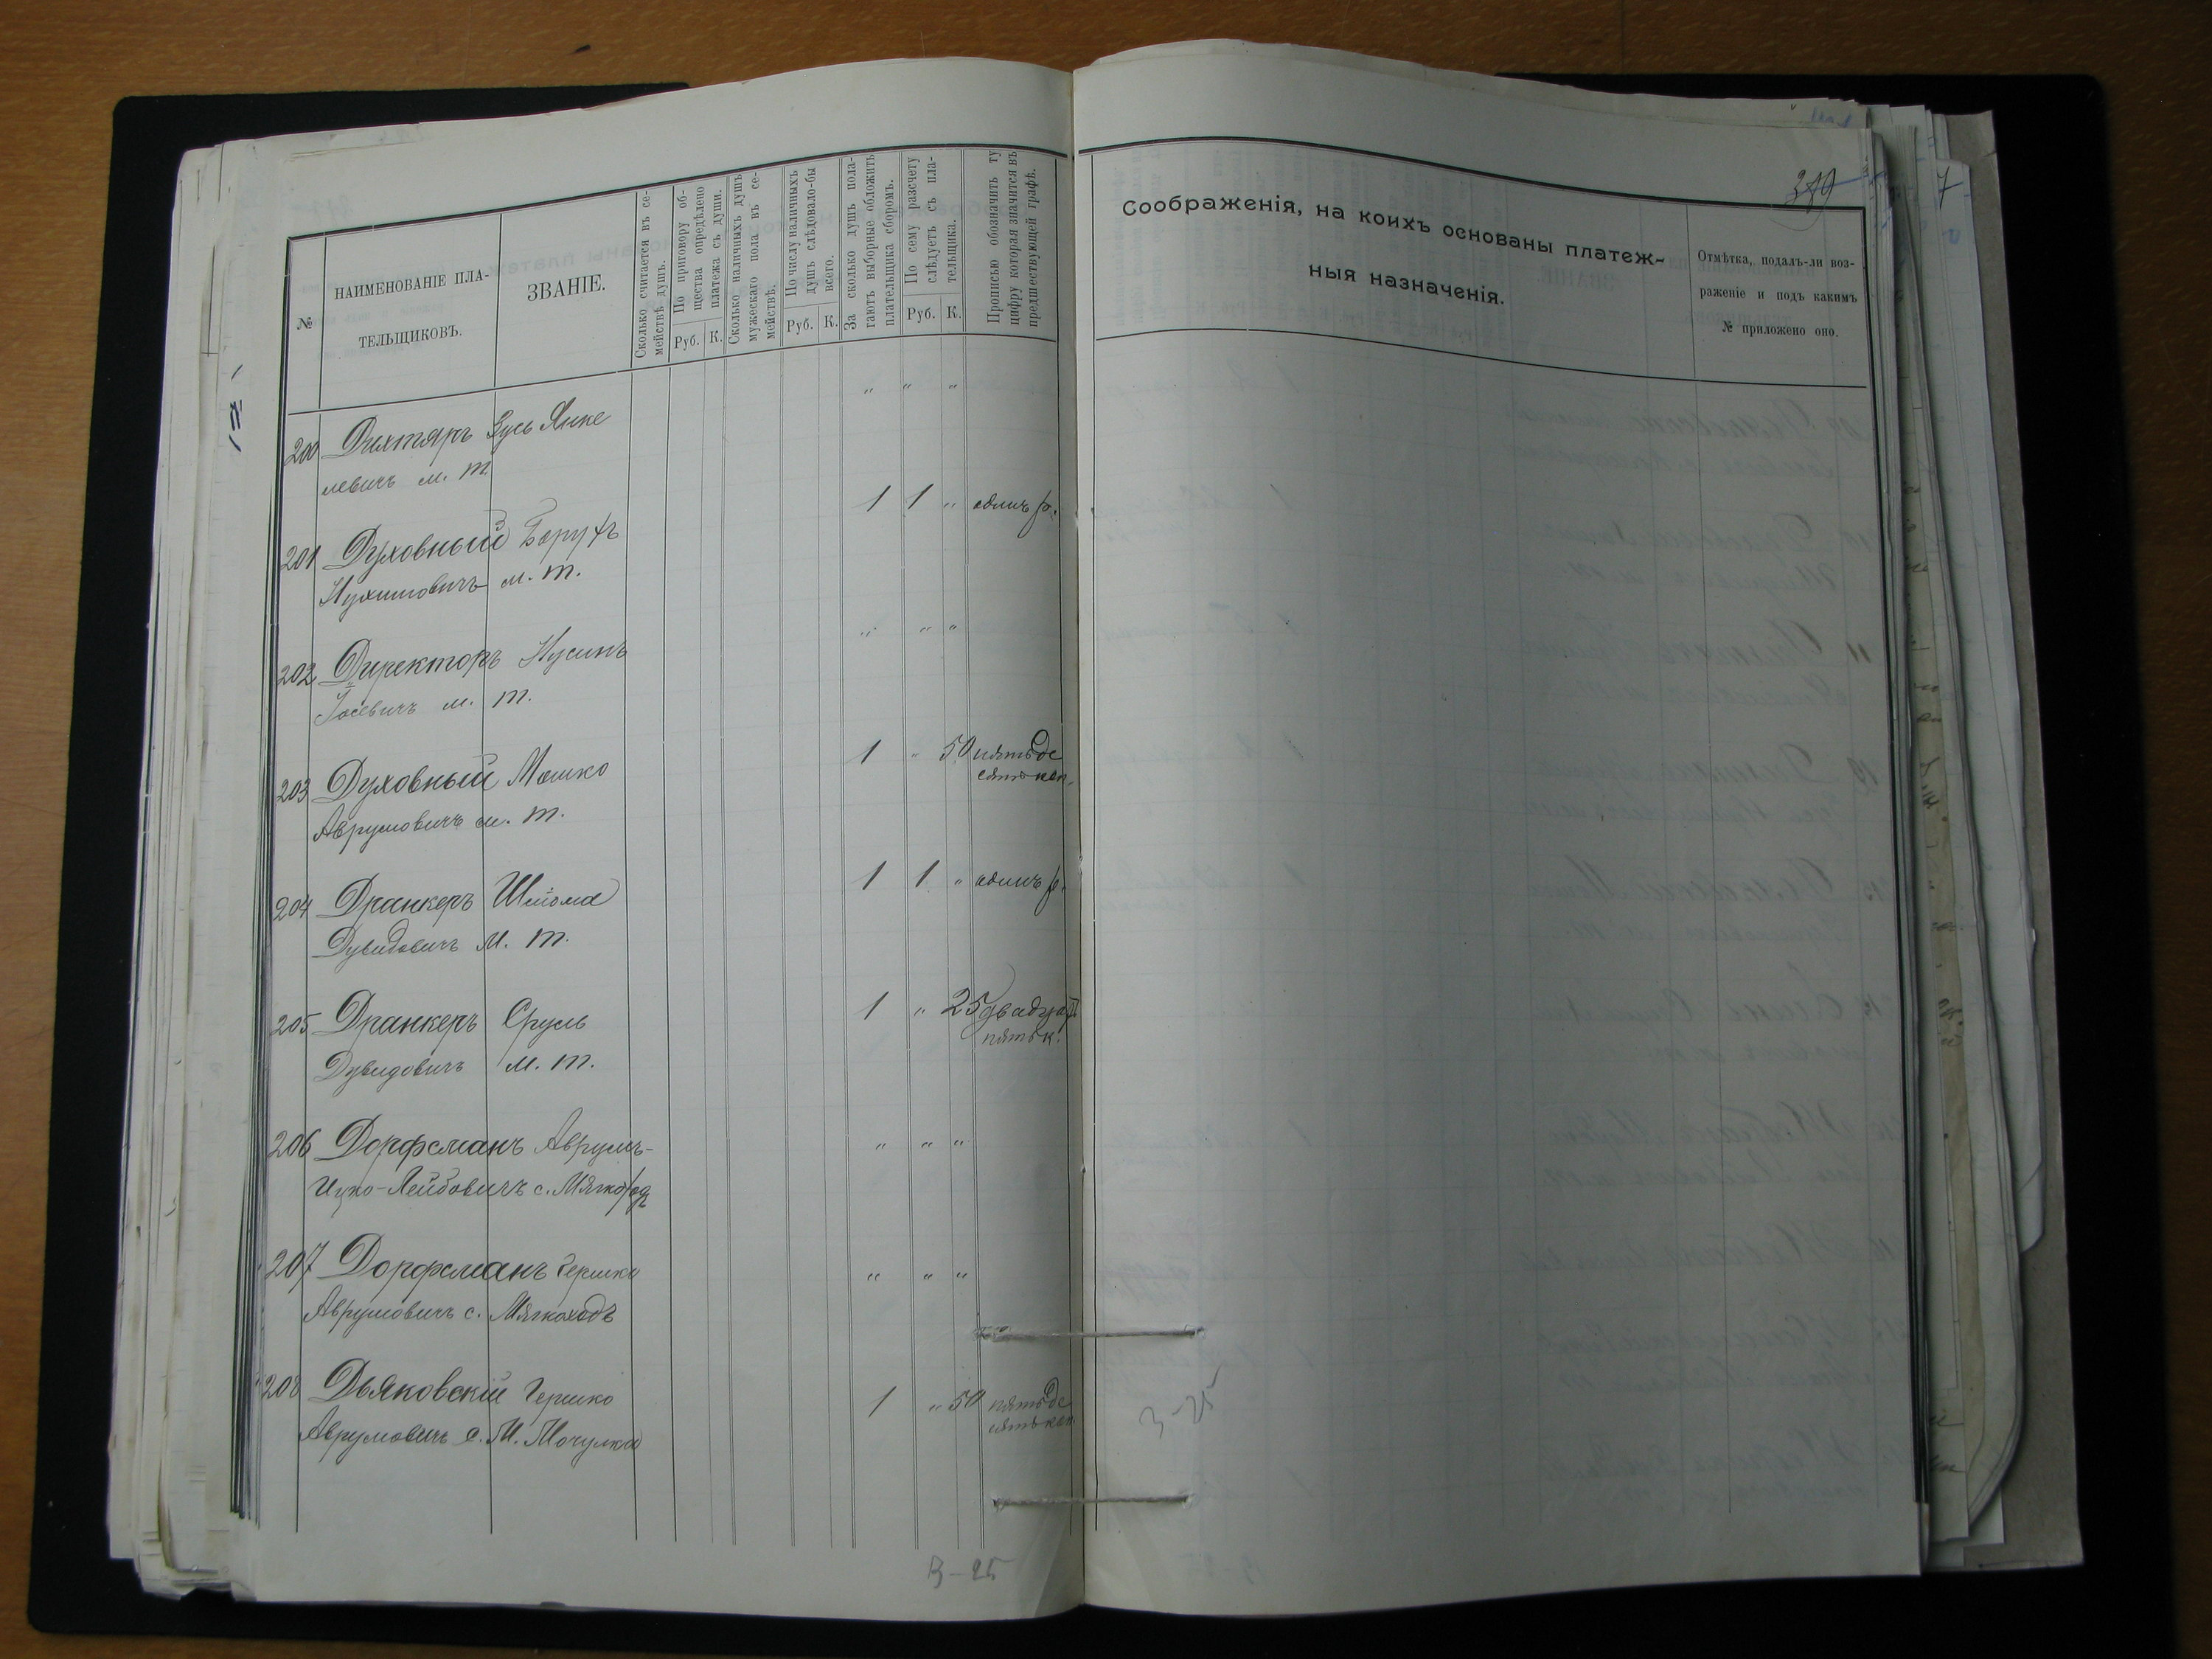 №
НАИМЕНОВАНІЕ ПЛА-
ТЕЛЬЩИКОВЪ.
ЗВАНІЕ.
Сколько считается въ се-
мействѣ душъ.
По приговору об-
щества опредѣлено
платежа съ души.
Руб. К.
Сколько наличныхъ душъ
мужескаго пола въ се-
мействѣ.
По числу наличныхъ
душъ слѣдовало-бы
всего.
Руб. К.
За сколько душъ пола-
гаютъ выборные обложить
плательщика сборомъ.
По сему разсчету
слѣдуетъ съ пла-
тельщика.
Руб. К.
Прописью обозначить ту
цифру которая значится въ
предшествующей графѣ.
200 Дихтяръ Зусь Янке " " "
левичъ м. Т
201 Духовный Борухъ 1 1 " одинъ р.
Нухимовичъ м. Т.
202 Директоръ Нусинъ " " "
Іосевичъ м. Т.
203 Духовный Мошко 1 " 50 пятьде
сятъ коп.
Аврумовичъ м. Т.
204 Дранкеръ Шлёма 1 1 " одинъ р.
Дувидовичъ М. Т.
205 Дранкеръ Сруль 1 " 25 двадцать
пять к.
Дувидовичъ М. Т.
206 Дорфсманъ Аврумъ- " " "
Ицко-Лейбовичъ с. Мягкоходъ
207 Дорфсманъ Гершко " " "
Аврумовичъ с. Мягкоходъ
208 Дьяковскій Гершко 1 " 50 пятьде
сятъ коп.
Аврумовичъ с. М. Мочулка
3-25
279
Соображенія, на коихъ основаны платеж-
ныя назначенія.
Отмѣтка, подалъ-ли воз-
раженіе и подъ какимъ
№ приложено оно.
3-25